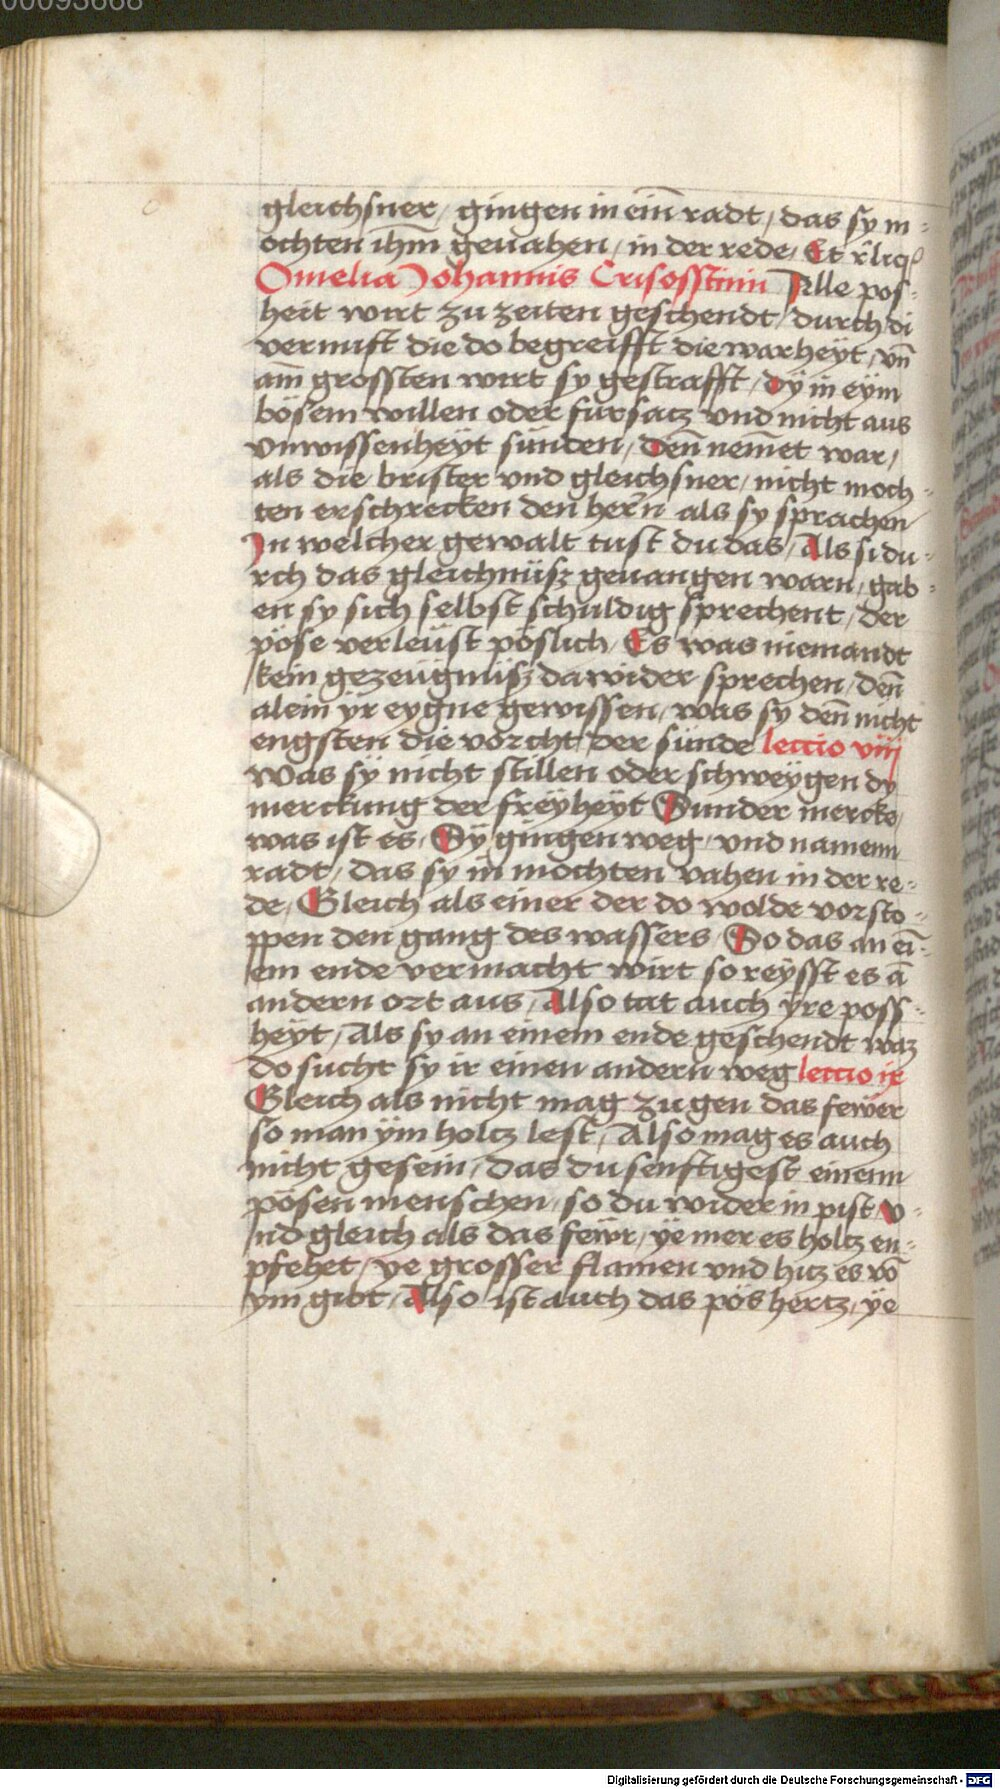 00093668
gleichsner / gingen in eiñ radt / das sy m-
ochten ihm̄ geuahen / in der rede / Et rliqꝰ
Omelia Johannis Crisosstimi Alle pos-
heit wirt zu zeiten geschendt / durch di
vernuft die do begreifft die warheÿt / vn̄
am̄ grossten wirt sy gestrafft / dÿ in eÿm
bösem willen oder fursatz vnd nicht aus
vnwissenheÿt sünden / den nem̄et war /
als die brister vnd gleichsner / nicht moch-
ten erschrecken den her̄n als sy sprachen
In welcher gewalt tust du das / Als si du-
rch das gleichnüsz geuangen warn / gab-
en sy sich selbst schuldig sprechent / der
pöse verleüst pöslich / Es was niemandt
kein gezeügnüsz da wider sprechen / den̄
alein yr eygne gewissen / was sy den̄ nicht
engsten die vorcht der sünde lectio viij
Was sÿ nicht stillen oder schweÿgen dy
merckung der freÿheÿt Sunder mercke /
was ist es / Sÿ gingen weg / vnd namenn
radt / das sy in mochten vahen in der re-
de / Gleich als einer der do wolde vorsto-
ppen den gang des wassers / So das an ei-
em ende vermacht wirt so reÿsst es ā
andern ort aus / Also tat auch ÿre poss-
heÿt / Als sy an einem ende geschendt waz
do sucht sy ir einen andern weg lectio ix
Gleich als nicht mag zu gen das fewer
so man ÿm holtz lest / Also mag es auch
nicht gesein / das du senftigest einenn
pösen menschen / so du wider in pist / v-
nd gleich als das fewr / ÿe mer es holtz en-
pfehet / ye grosser flamen vnd hitz es vō
ym gibt / Also ist auch das pös hertz / ÿe
Digitalisierung gefördert durch die Deutsche Forschungsgemeinschaft - DFG